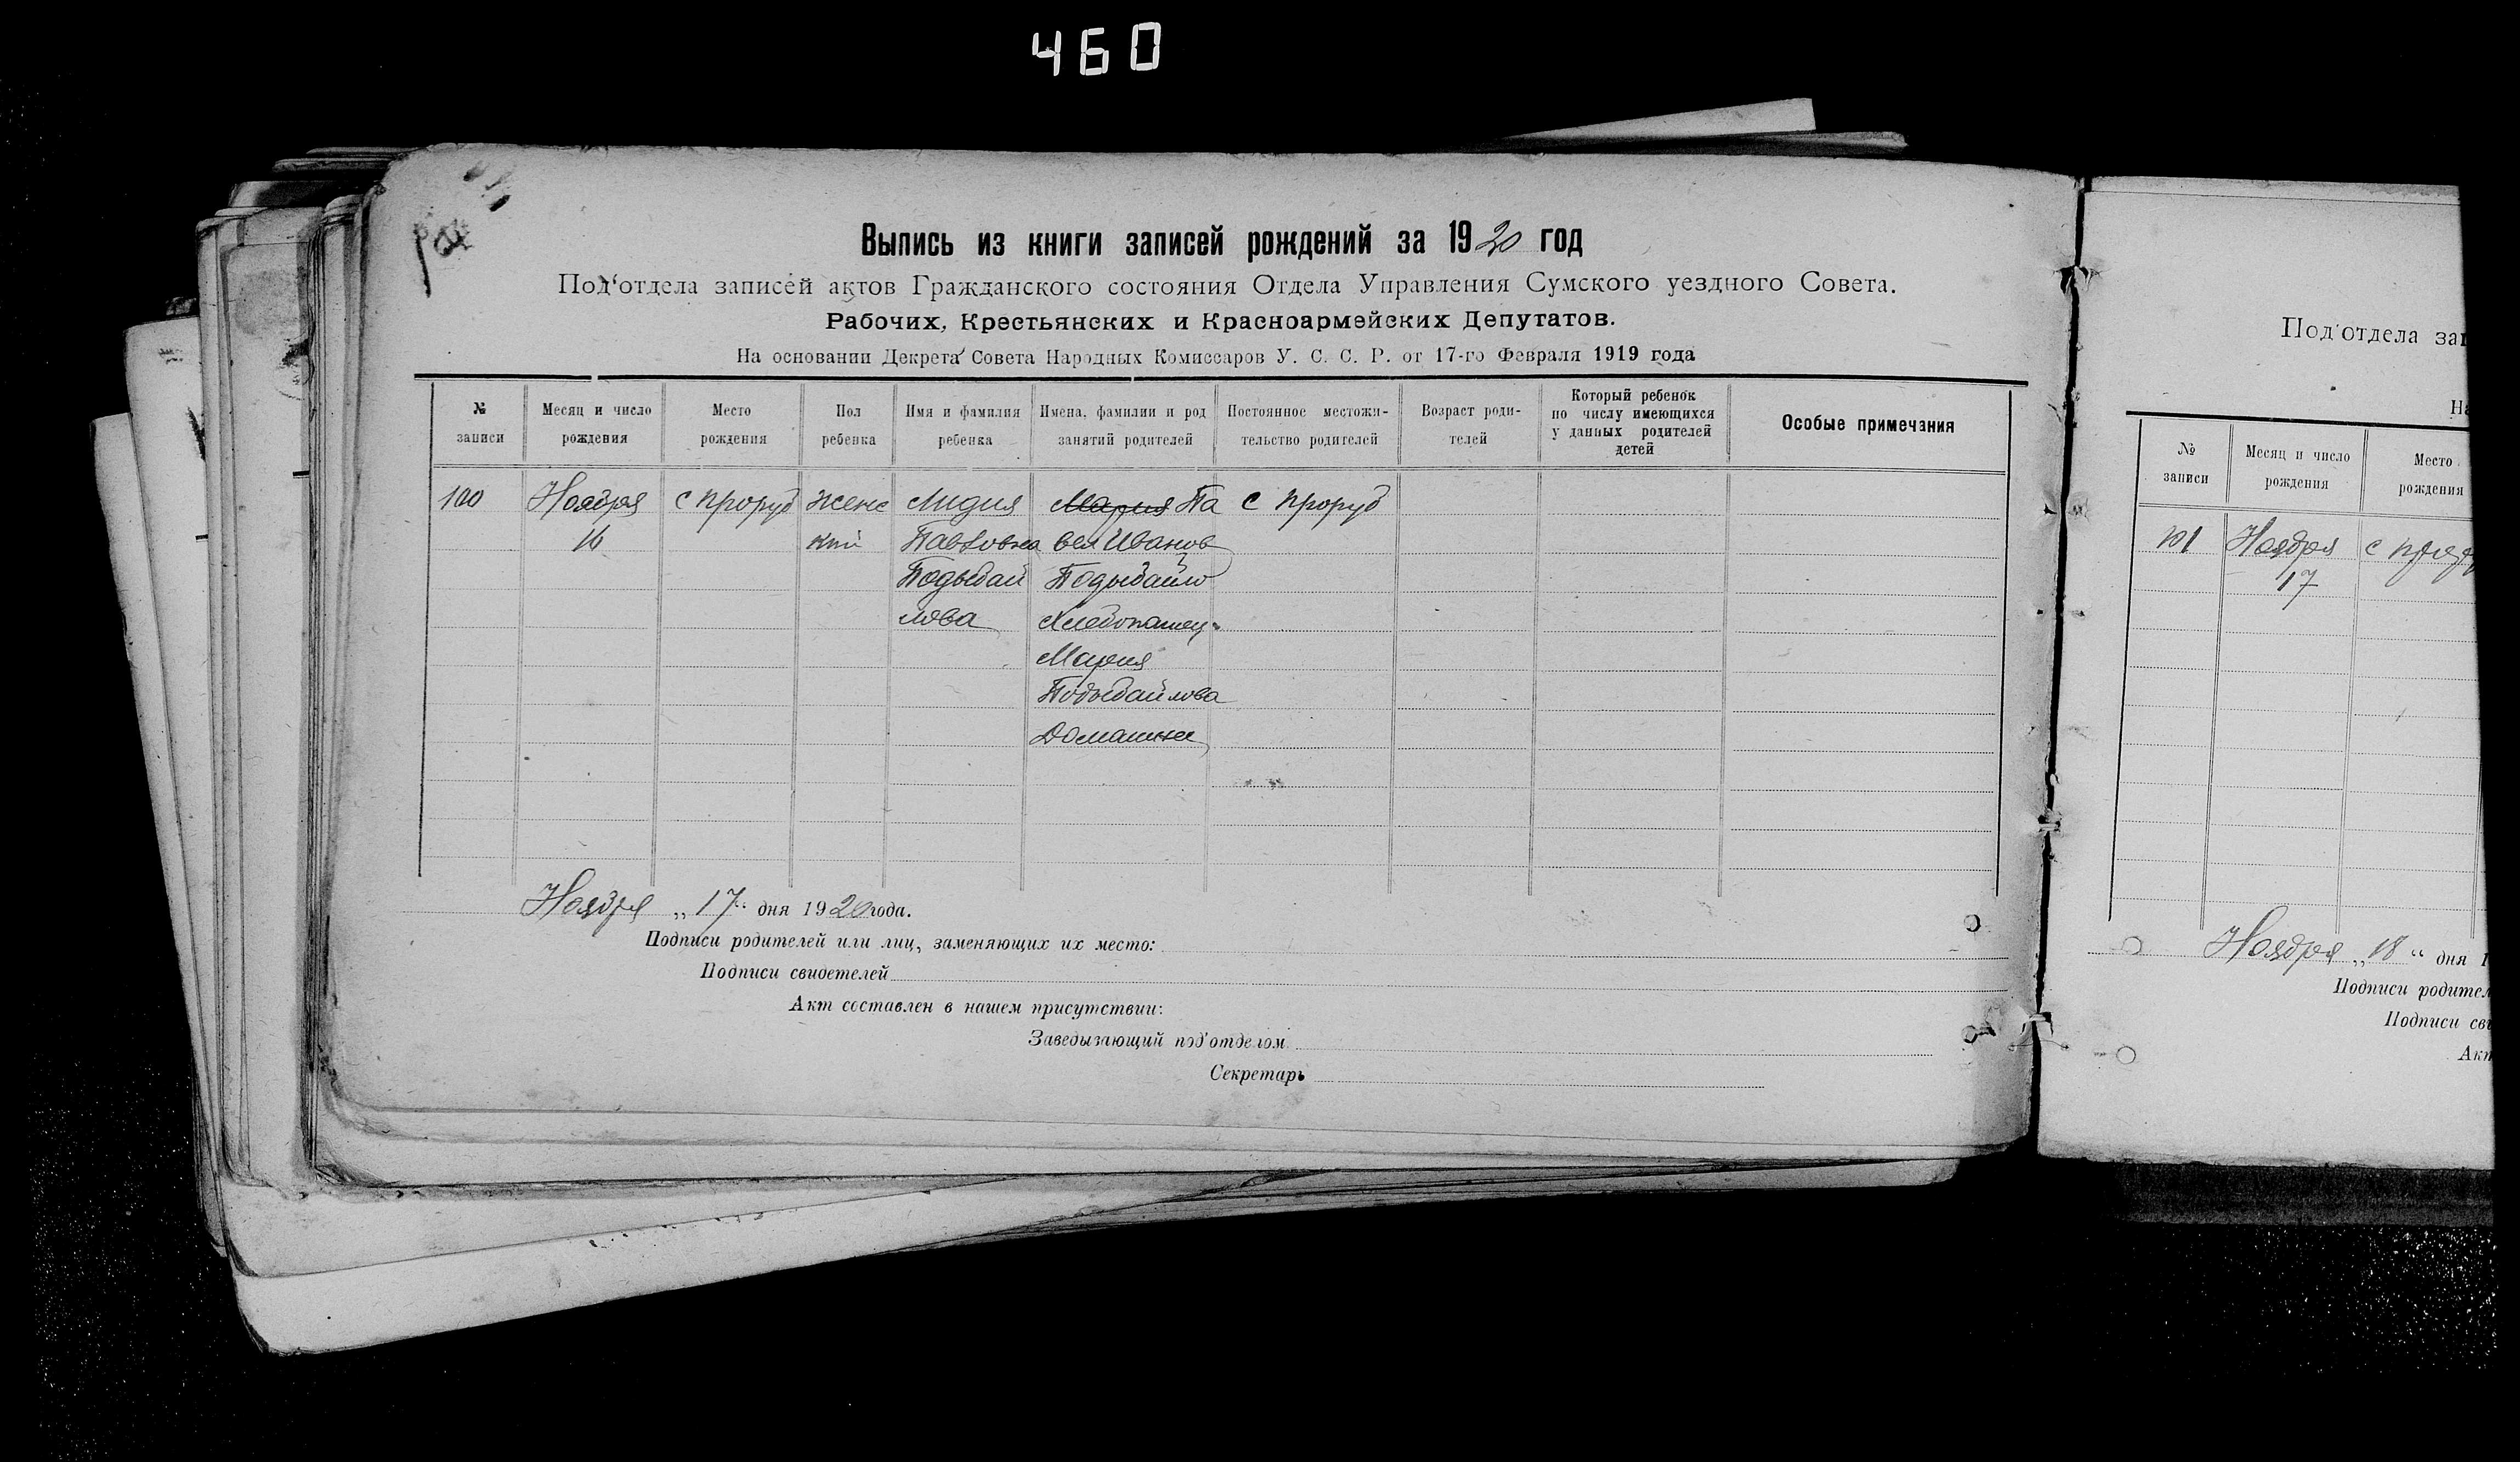 460
Выпись из книги записей рождений за 1920 год
Под'отдела записей актов Гражданского состояния Отдела Управления Сумского уездного Совета.
Рабочих, Крестьянских и Красноармейских Депутатов.
На основании Декрета Совета Народных Комиссаров У. С. С. Р. от 17-го Февраля 1919 года
№ записи
Месяц и число рождения
Место рождения
Пол ребенка
Имя и фамилия ребенка
Имена, фамилии и род занятий родителей
Постоянное местожи-
тельство родителей
Возраст роди-
телей
Который ребенок
по числу имеющихся
у данных родителей
детей
Особые примечания
100
Ноября
16
с Проруб
женс
кий
Лидия
Павловна
Подыбай
лова
Мария Па
вел Иванов
Подыбайло
Хлебопашец
Мария
Подыбайлова
Домашнее
с Проруб
Ноября „17" дня 1920 года.
Подписи родителей или лиц, заменяющих их место:
Подписи свидетелей
Акт составлен в нашем присутствии:
Заведывающий под'отделом
Секретарь
Под'отдела за
На
№ записи
Месяц и число рождения
Место рождения
101
Ноября
17
с
Ноября „18" дня 1
Подписи родител
Подписи сви
Акт